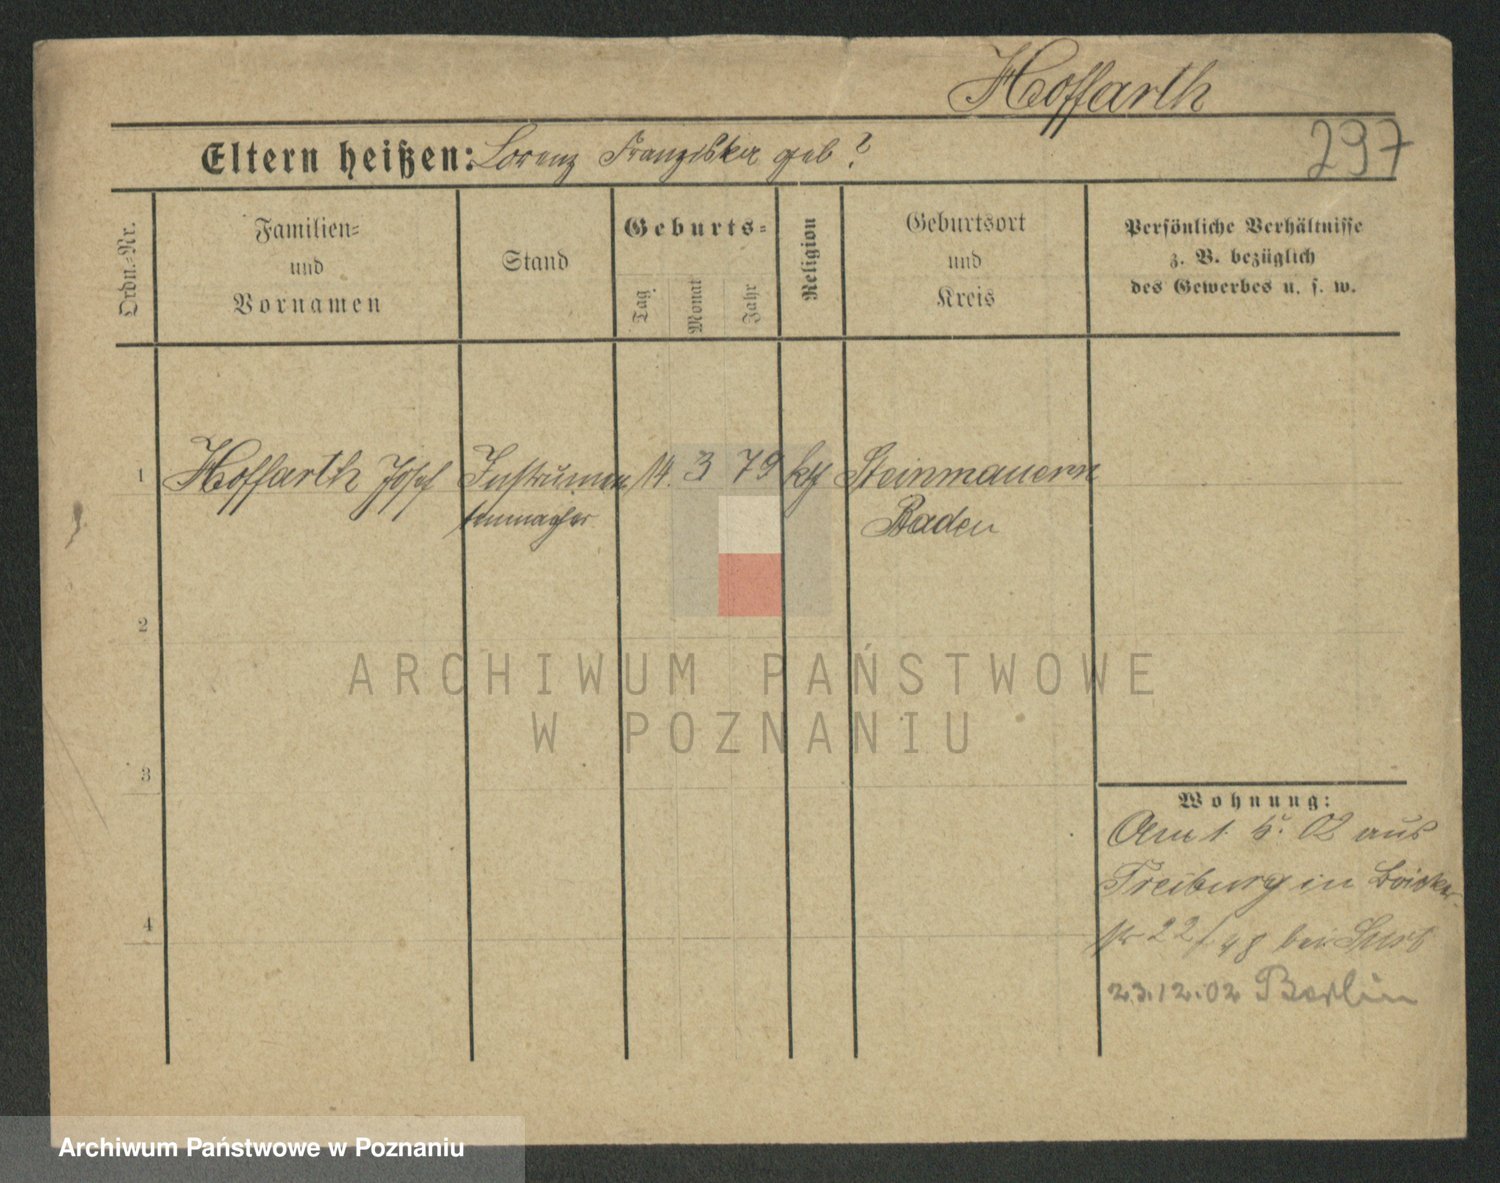 Hoffarth
297
Eltern heißen: Lorenz Franziska geb ?
Ordn.-Nr.
Familien-
und
Vornamen
Stand
Geburts-
Tag
Monat
Jahr
Religion
Geburtsort
und
Kreis
Persönliche Verhältnisse
z. B. bezüglich
des Gewerbes u. s. w.
1 Hoffarth Josef Instrumen 14. 3 79 kth Steinmauern
tenmacher Baden
2
3
4
Wohnung:
Am 1. 5. 02 aus
Freiburg in
22 bei
23.12.02 Berlin
ARCHIWUM PAŃSTWOWE
W POZNANIU
Archiwum Państwowe w Poznaniu